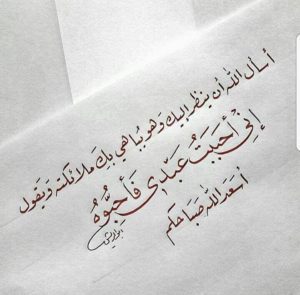 أسأل الله أن ينظر إليك وهو يباهي بك ملائكته ويقول
إني أحببتُ عبدي فأحبُّوهُ
أسعد الله صباحكم